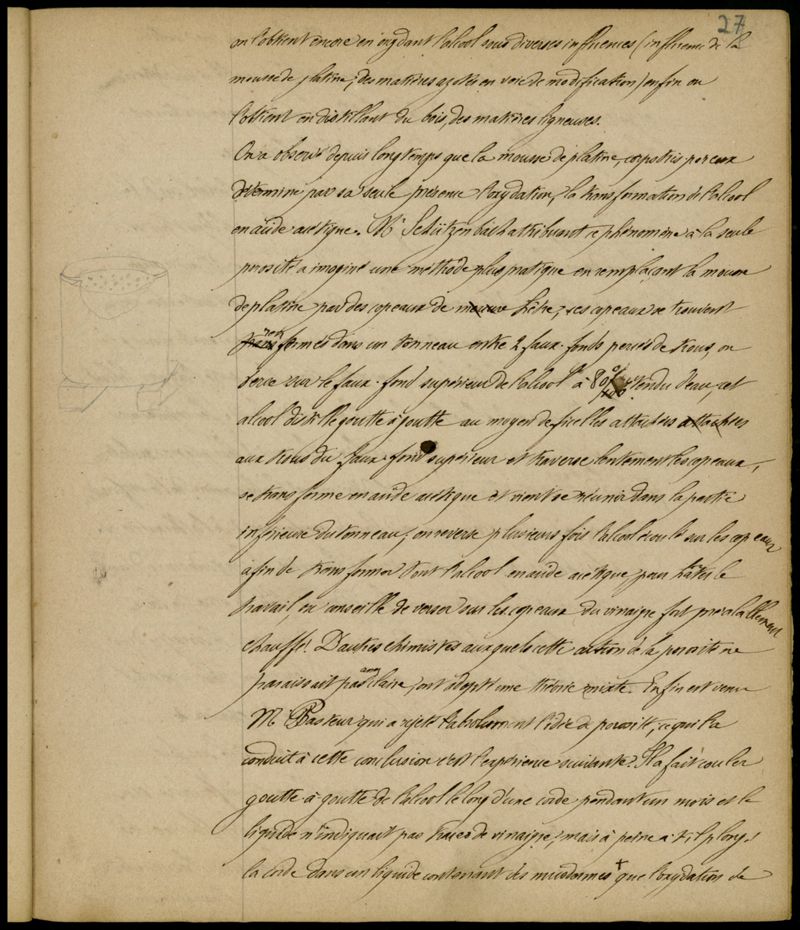 27
on l'obtient encore en oxydant l'alcool sous diverses influences (influence de la
mousse de platine, des matières azotées en voie de modification) enfin on
l'obtient en distillant du bois, des matières ligneuses.
On a observé depuis longtemps que la mousse de platine, corps très poreux
détermine par sa seule présence l'oxydation, la transformation de l'alcool
en acide acétique. Mr Schützenbach attribuant ce phénomène à la seule
porosité a imaginé une méthode plus pratique en remplaçant la mousse
de platine par des copeaux de hêtre; ces copeaux se trouvent
renfermés dans un tonneau entre 2 faux-fonds percés de trous, on
verse sur le faux-fond supérieur de l'alcool à 80% étendu d'eau, cet
alcool distille goutte à goutte au moyen de ficelles attachées
aux trous du faux-fond supérieur et traverse lentement les copeaux,
se transforme en acide acétique et vient se réunir dans la partie
inférieure du tonneau; on reverse plusieurs fois l'alcool écoulé sur les copeaux
afin de transformer tout l'alcool en acide acétique pour hâter le
travail, on conseille de verser sur les copeaux du vinaigre fort préalablement
chauffé. D'autres chimistes auxquels cette action de la porosité ne
paraissait pas assez claire, ont adopté une théorie mixte. Enfin est venu
Mr Pasteur qui a rejeté absolument l'idée de porosité, ce qui l'a
conduit à cette conclusion c'est l'expérience suivante: Il a fait couler
goutte à goutte de l'alcool le long d'une corde pendant un mois et le
liquide n'indiquait pas traces de vinaigre, mais à peine a-t-il plongé
la corde dans un liquide contenant des mycodermes + que l'oxydation de